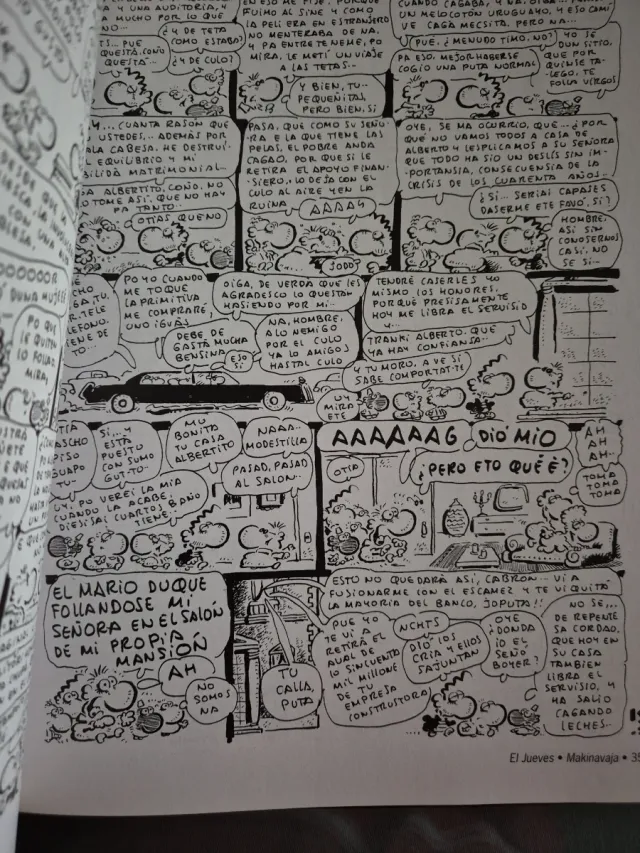 Y UNA AUDITORIA,
A MUCHO POR LO QUE
NO...
¿Y DE TETA
COMO ESTABA?
¿Y DE CULO?
EN ESO ME FIJE. PORQUE
FUIMO AL SINE Y COMO
LA PELI ERA EN ESTRANJERO
NO MENTERABA DE NA,
Y PA ENTRETENEME, PO
MIRA, LE METÍ UN VIAJE
A LAS TETAS...
Y BIEN, TU..
PEQUEÑITAS,
PERO BIEN, SI
CUANDO CAGABA, Y NA,
UN MELOCOTÓN URUGUAYO, Y ESO CAMI
VE CAGÁ MECSITA. PERO NA...
PUE, ¿MENUDO TIMO, NO?
PA ESO, MEJOR HABERSE
COGIO UNA PUTA NORMAL
YO SE
DUN SITIO,
QUE POR
QUINSE TA-
LEGO, TE
FOLLA VIRGOS
CUANTA RASÓN QUE
USTEDES... ADEMÁS POR
ALA CABESA. HE DESTRUI-
EL EQUILIBRIO Y MI
BILIDÁ MATRIMONIAL
ALBERTITO, COÑO, NO
TOME ASI, QUE NO HAY
PA TANTO
OTIAS, QUE NO
PASA, QUE COMO SU SEÑO-
RA E LA QUE TIENE LAS
PELAS, EL POBRE ANDA
CAGAO, PORQUE SI LE
RETIRA EL APOYO FINAN-
SIERO, LO DEJA CON EL
CULO AL AIRE Y EN LA
RUINA
AAAAG
JODO
OYE, SE MA OCURRIO, QUE... ¿POR
QUÉ NO VAMOS TODOS A CASA DE
ALBERTO Y LESPLICAMOS A SU SEÑORA
QUE TODO HA SIO UN DESLIS SIN IM-
PORTANSIA, CONSECUENSIA DE LA
CRISIS DE LOS CUARENTA AÑOS..
¿SI... SERIAI CAPASES
DASERME ETE FAVÓ, SI?
HOMBRE,
ASI SIN
CONOSERNOS
CASI, NO
SE SI...
PO YO CUANDO
ME TOQUE
LA PRIMITIVA
ME COMPRARÉ
UNO IGUÁ
DEBE DE
GASTÁ MUCHA
BENSINA
ESO
SI
OIGA, DE VERDA QUE LES
AGRADESCO LO QUESTÁN
HASIENDO POR MI...
NA, HOMBRE,
A LO NEMIGO
POR EL CULO
YA LO AMIGOS
HASTAL CULO
TENDRÉ CASERLES YO
MISMO LOS HONORES,
PORQUE PRESISAMENTE
HOY ME LIBRA EL SERVISIO
Y...
TRANKI, ALBERTO, QUE
YA HAY CONFIANSA...
Y TU MORO, A VE SI
SABE COMPORTAT-TE
UY
MIRA
ETE
SI... Y
ESTA
PUESTU
CON SUMO
GUT-TO...
MU
BONITA
TU CASA
ALBERTITO
NAAA..
MODESTILLA
PASAD, PASAD
AL SALON...
UY, PO VEREI LA MIA
CUANDO LA ACABE,
DIESISAI CUARTOS BAÑO
TIENE...
AAAAAAG
DIÓ MIO
¿PERO ETO QUÉ É?
OTIA
AH
AH
AH..
TOMA
TOMA
TOMA
EL MARIO DUQUE
FOLLANDOSE MI
SEÑORA EN EL SALON
DE MI PROPIA
MANSION
AH
NO
SOMOS
NA
ESTO NO QUEDARÁ ASÍ, CABRÓN... VI A
FUSIONARME CON EL ESCAMEZ Y TE VI QUITÁ
LA MAYORIA DEL BANCO, JOPUTA!!
TU
CALLA,
PUTA
PUE YO
TE VI A
RETIRÁ EL
AVAL DE
LO SINCUENTO
MIL MILLONE
DE TU
EMPRESA
CONSTRUSTORA
NCHTS
DIÓ LOS
CRIA Y ELLOS
SAJUNTAN
OYE
¿DONDA
IO EL
SEÑÓ
BOYER?
NO SE,..
DE REPENTE
SA CORDAO,
QUE HOY EN
SU CASA
TAMBIEN
LIBRA EL
SERVISIO, Y
HA SALIO
CAGANDO
LECHES...
El Jueves • Makinavaja • 35